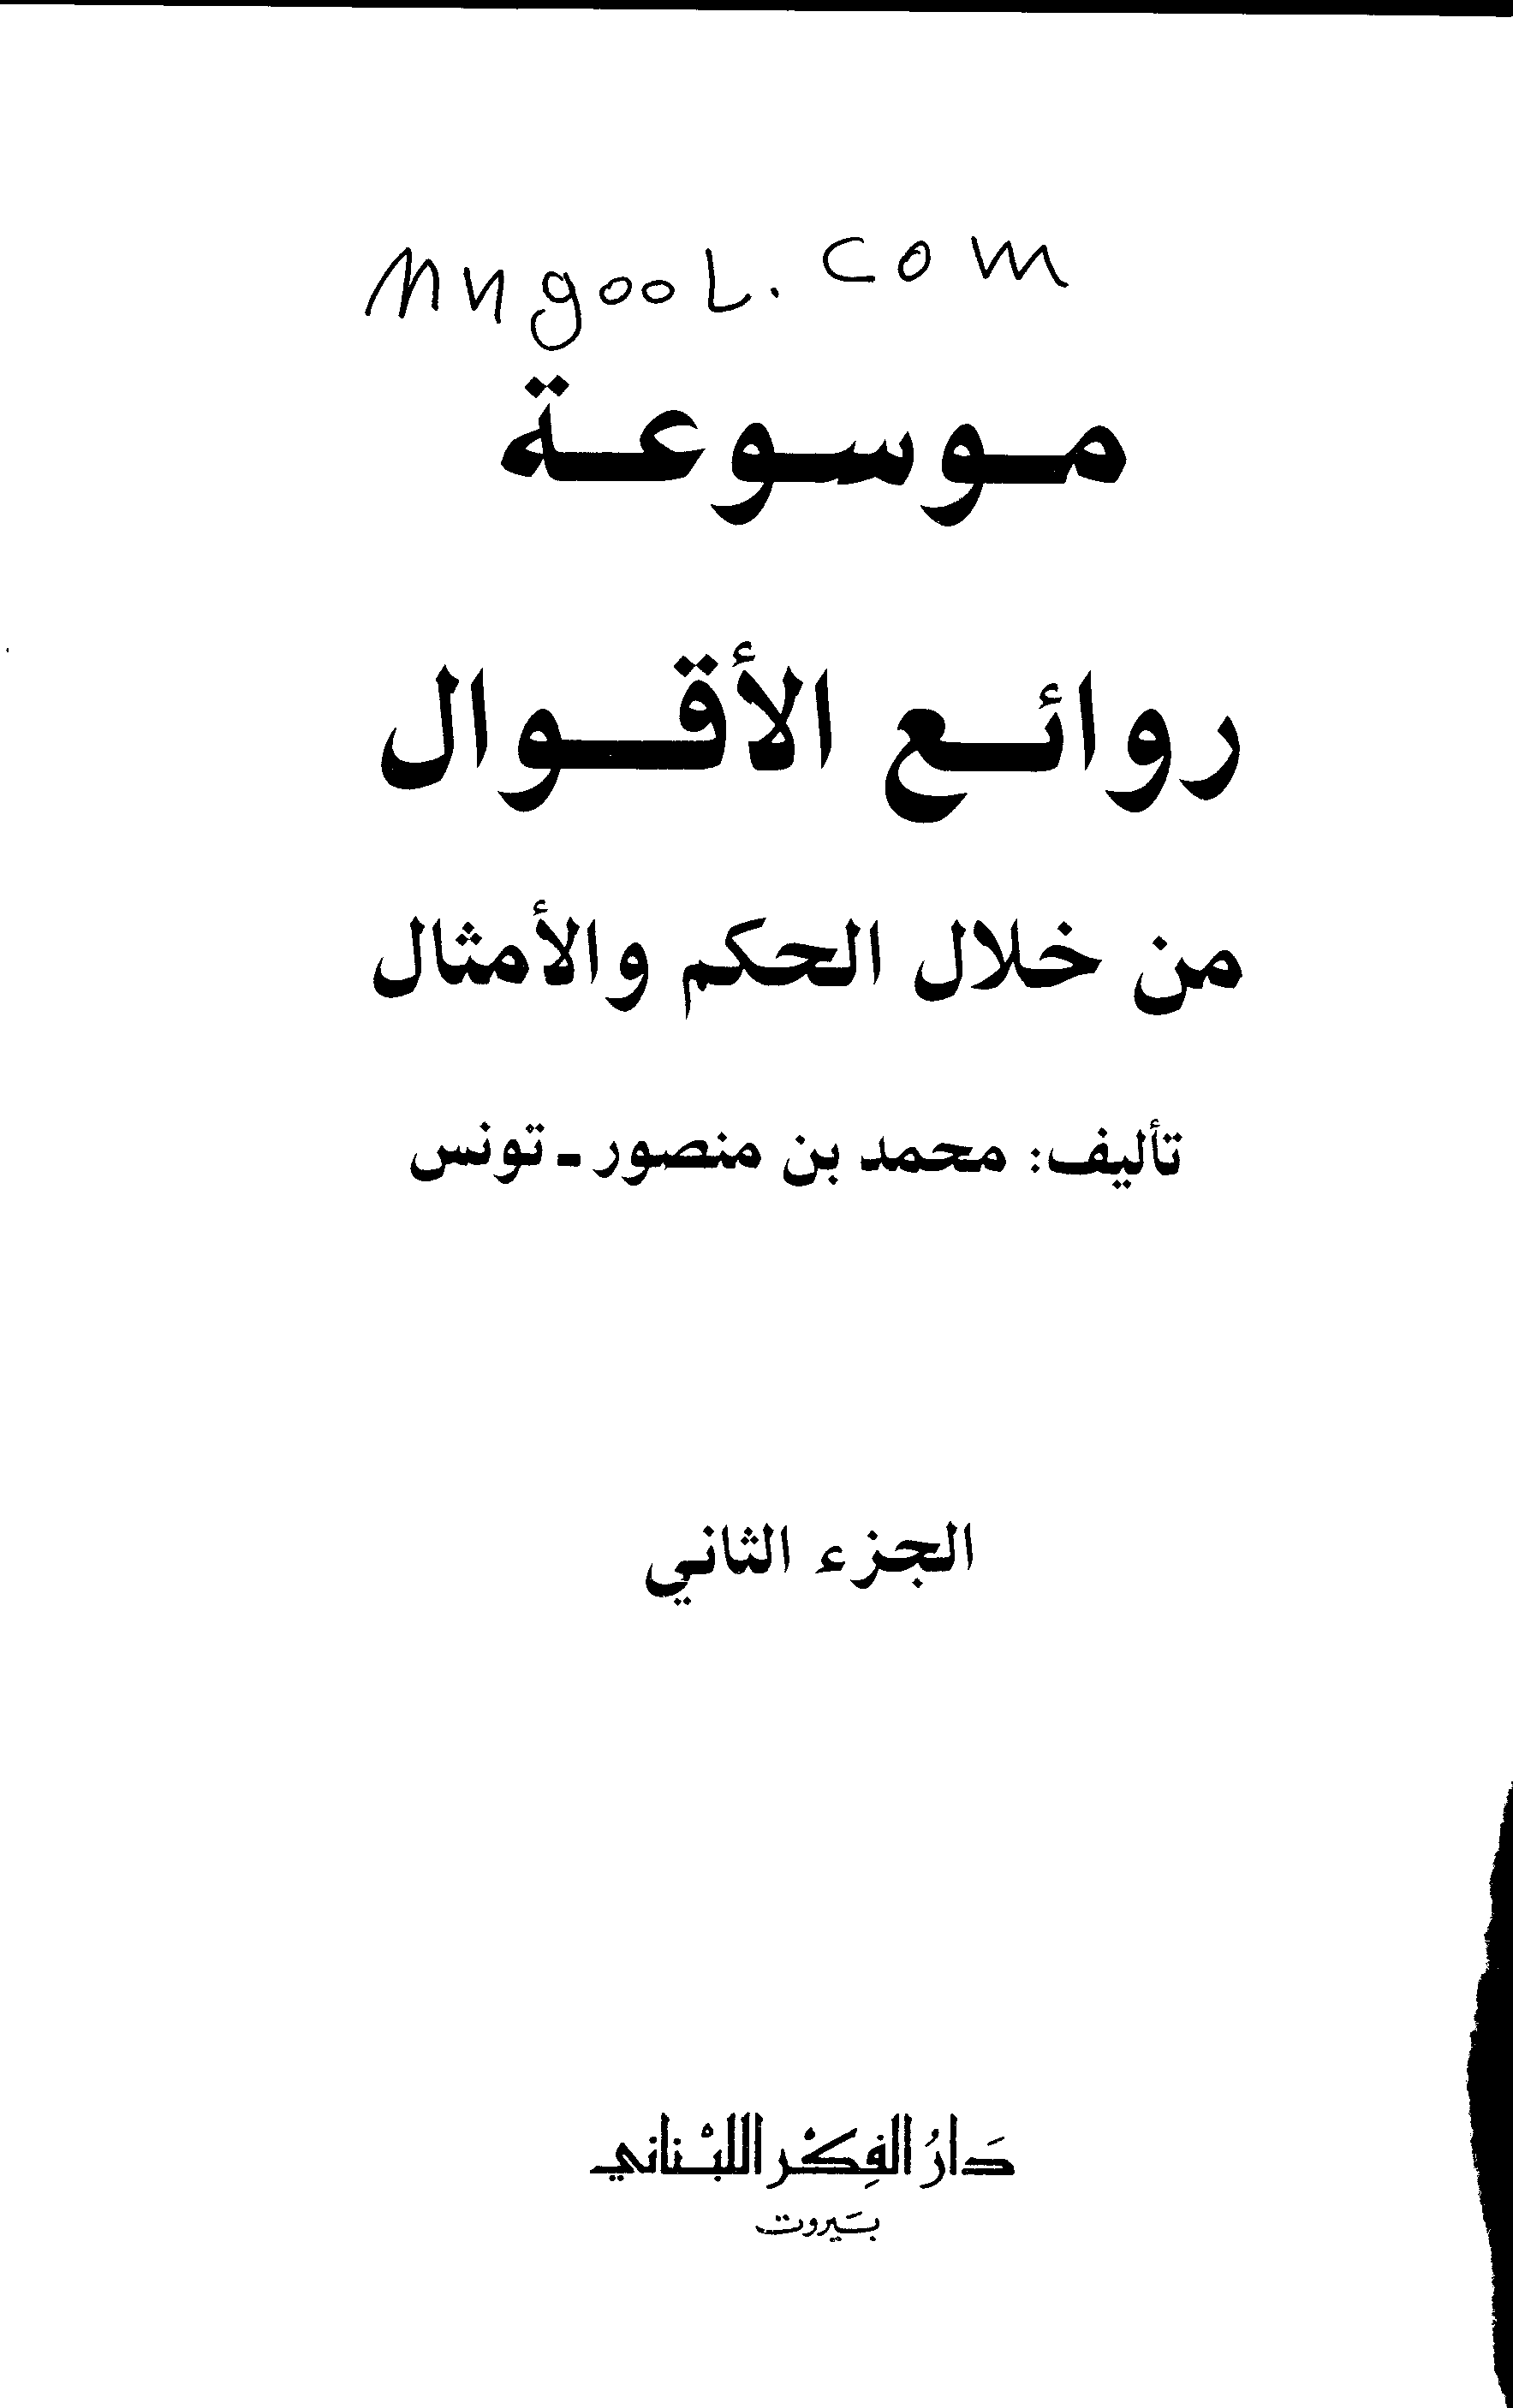 Mngool.com
موسوعة
روائع الأقوال
من خلال الحكم والأمثال
تأليف: محمد بن منصور ـ تونس
الجزء الثاني
دَارُ الفِكْر اللبْناني
بَيروت